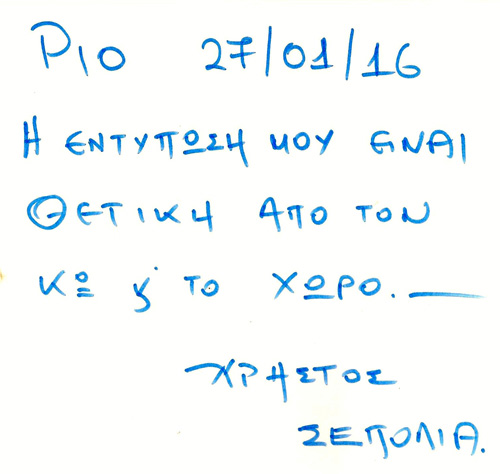 ΡΙΟ 27/01/16
Η ΕΝΤΥΠΩΣΗ ΜΟΥ ΕΙΝΑΙ
ΘΕΤΙΚΗ ΑΠΟ ΤΟΝ
ΚΟ Κ' ΤΟ ΧΩΡΟ.
ΧΡΗΣΤΟΣ
ΣΕΠΟΛΙΑ.